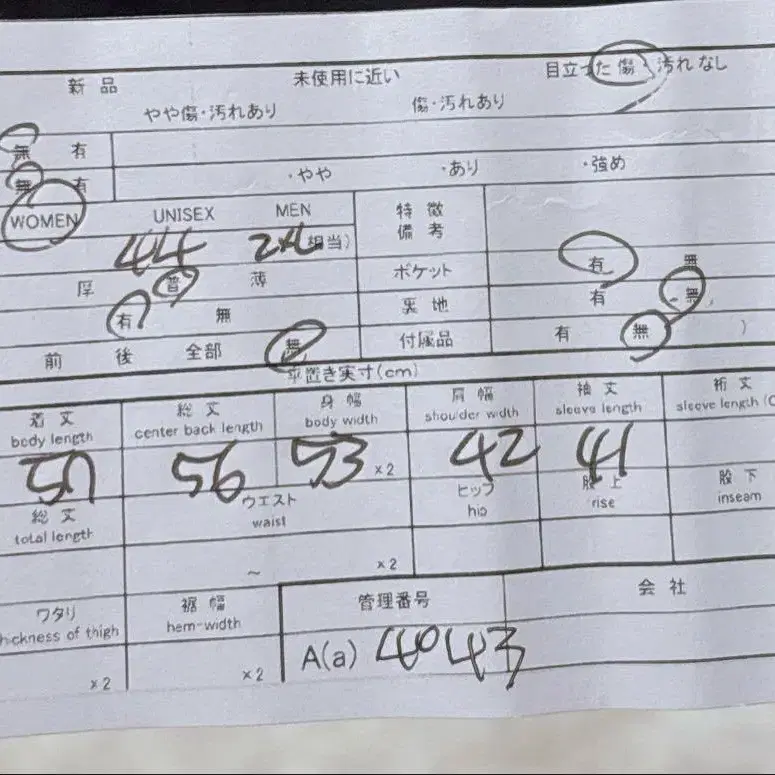 新品 未使用に近い 目立った傷、汚れなし
やや傷・汚れあり 傷・汚れあり
無 有
無 有 ・やや ・あり ・強め
WOMEN UNISEX MEN 特徴
備考
44 相当)
厚 普 薄 ポケット 有 無
有 無 裏地 有 無
前 後 全部 無 付属品 有 無 )
平置き実寸(cm)
着丈 総丈 身幅 肩幅 袖丈 裄丈
body length center back length body width shoulder width sleeve length sleeve length (C
56 53 ×2 42 41
総丈 ウエスト ヒップ 股上 股下
total length waist hip rise inseam
~ ×2
ワタリ 裾幅 管理番号 会社
hickness of thigh hem-width
×2 ×2 A(a) 4043